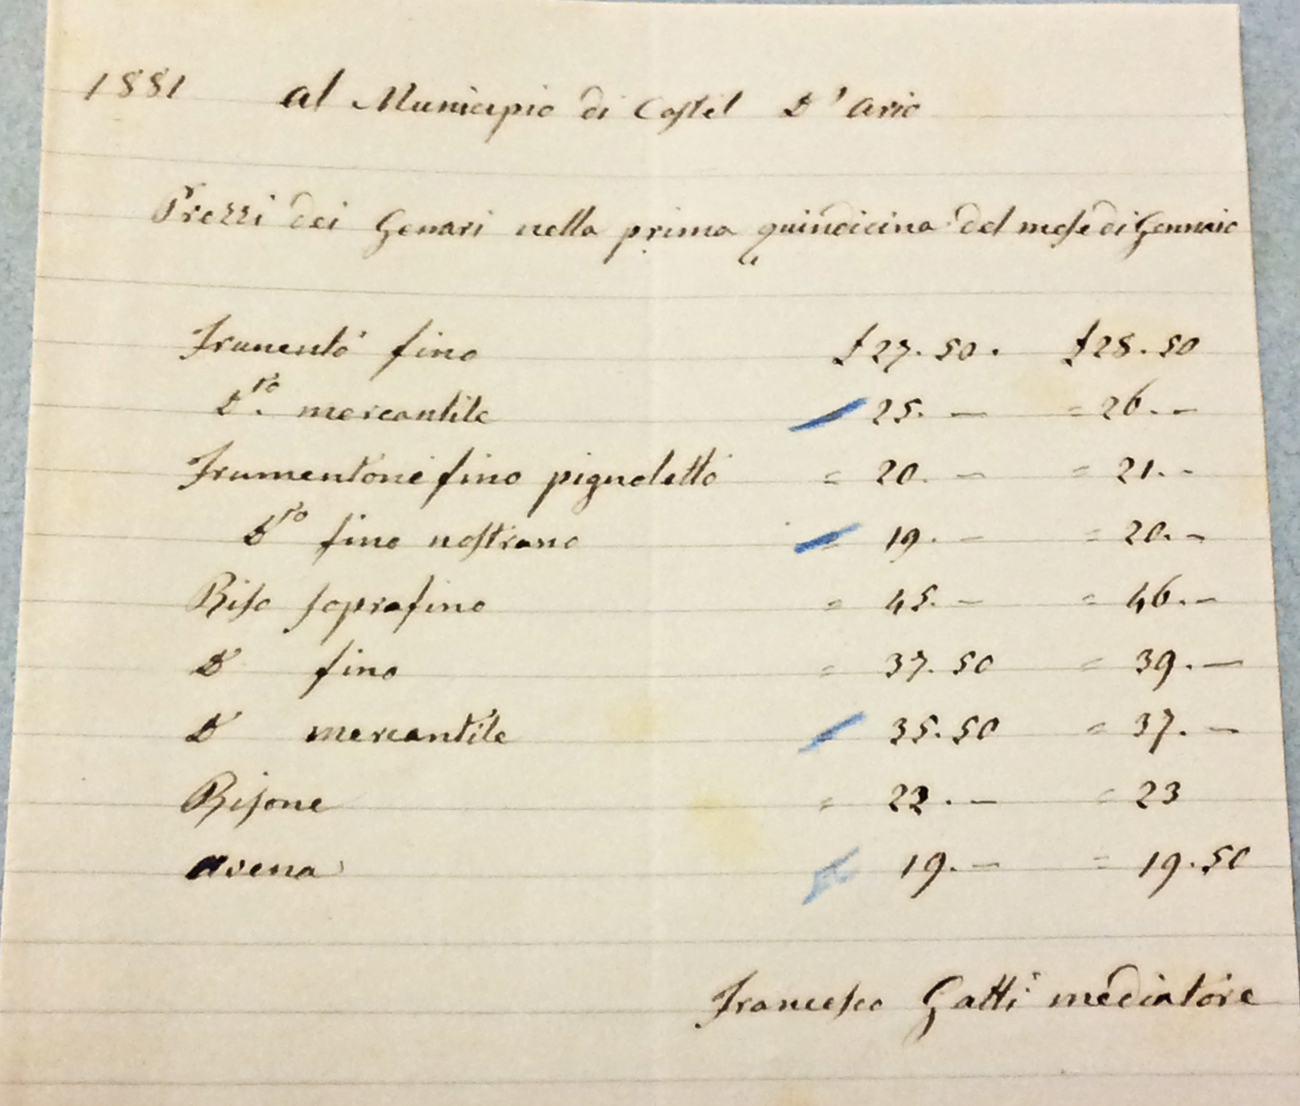 1881 al Municipio di Castel D'ario
Prezzi dei Genari nella prima quindicina del mese di Gennaio
Frumento fino £ 27.50. £ 28.50
D.ro mercantile 25. — = 26. —
Frumentone fino pignoletto = 20. — = 21. -
Dro fino nostrano = 19. — = 20. -
Riso soprafino = 45. — = 46. —
D fino = 37.50 = 39. —
D mercantile = 35.50 = 37. —
Risone = 22. — = 23
avena 19. — = 19.50
Francesco Gatti mediatore